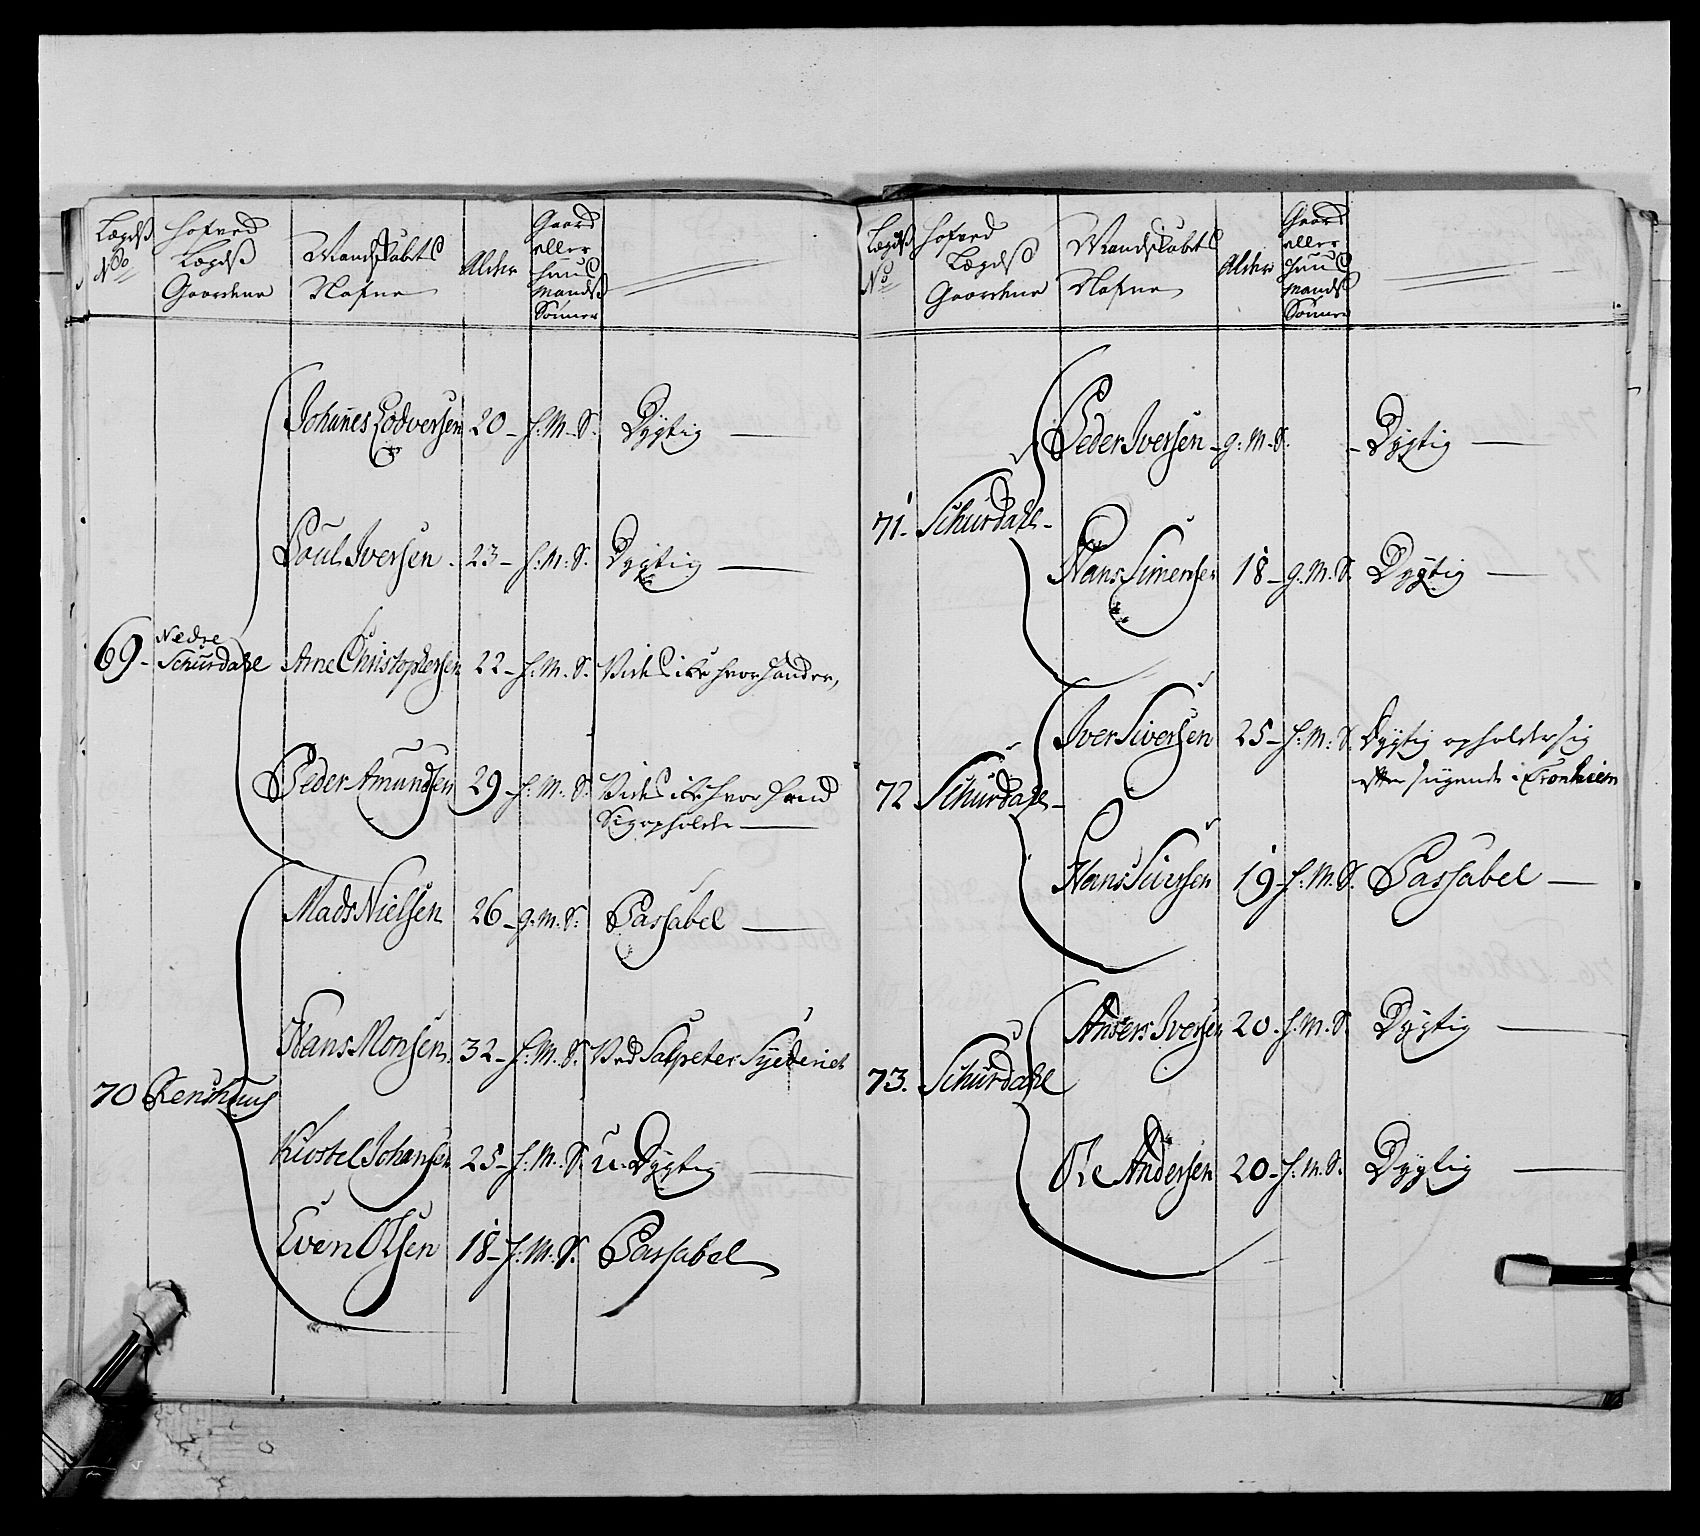 Lægds No
Hofved Lægds Gaardene
Mandskabets Nafne
Alder
Gaard eller Huus Mands Sønner
Johannes Lodversen 20 - H. M. S. Dygtig
Poul Iversen 23 - H. M. S. Dygtig
69 - Nedre Schürdahl Arne Christophersen 22 - H. M. S. Vides icke hvor hand er,
Peder Amundsen 29 - H. M. S. Vides icke hvor hand
Sig opholder
Mads Nielsen 26 - g. M. S. Passabel
Hans Monsen 32 - H. M. S. Ved Salpeter Syderiet
70 Renshuus
Kiostel Johansen 25 - H. M. S. u. Dygtig
Even Olsen 18 - H. M. S. Passabel
Lægds No
Hofved Lægds Gaardene
Mandskabets Nafne
Alder
Gaard eller Huus Mands Sønner
Peder Iversen - g: M. S. - Dygtig
71. Schürdahl -
Hans Simensen 18 - g. M. S. Dygtig
Iver Siversen 25 - H. M. S. Dygtig opholder sig
efter sigende i Tronhiem
72 Schürdahl -
Hans Siversen 19 - H. M. S. Passabel
Anders Iversen 20 - H. M. S. Dygtig
73. Schürdahl
Ole Andersen 20 - H. M. S. Dygtig